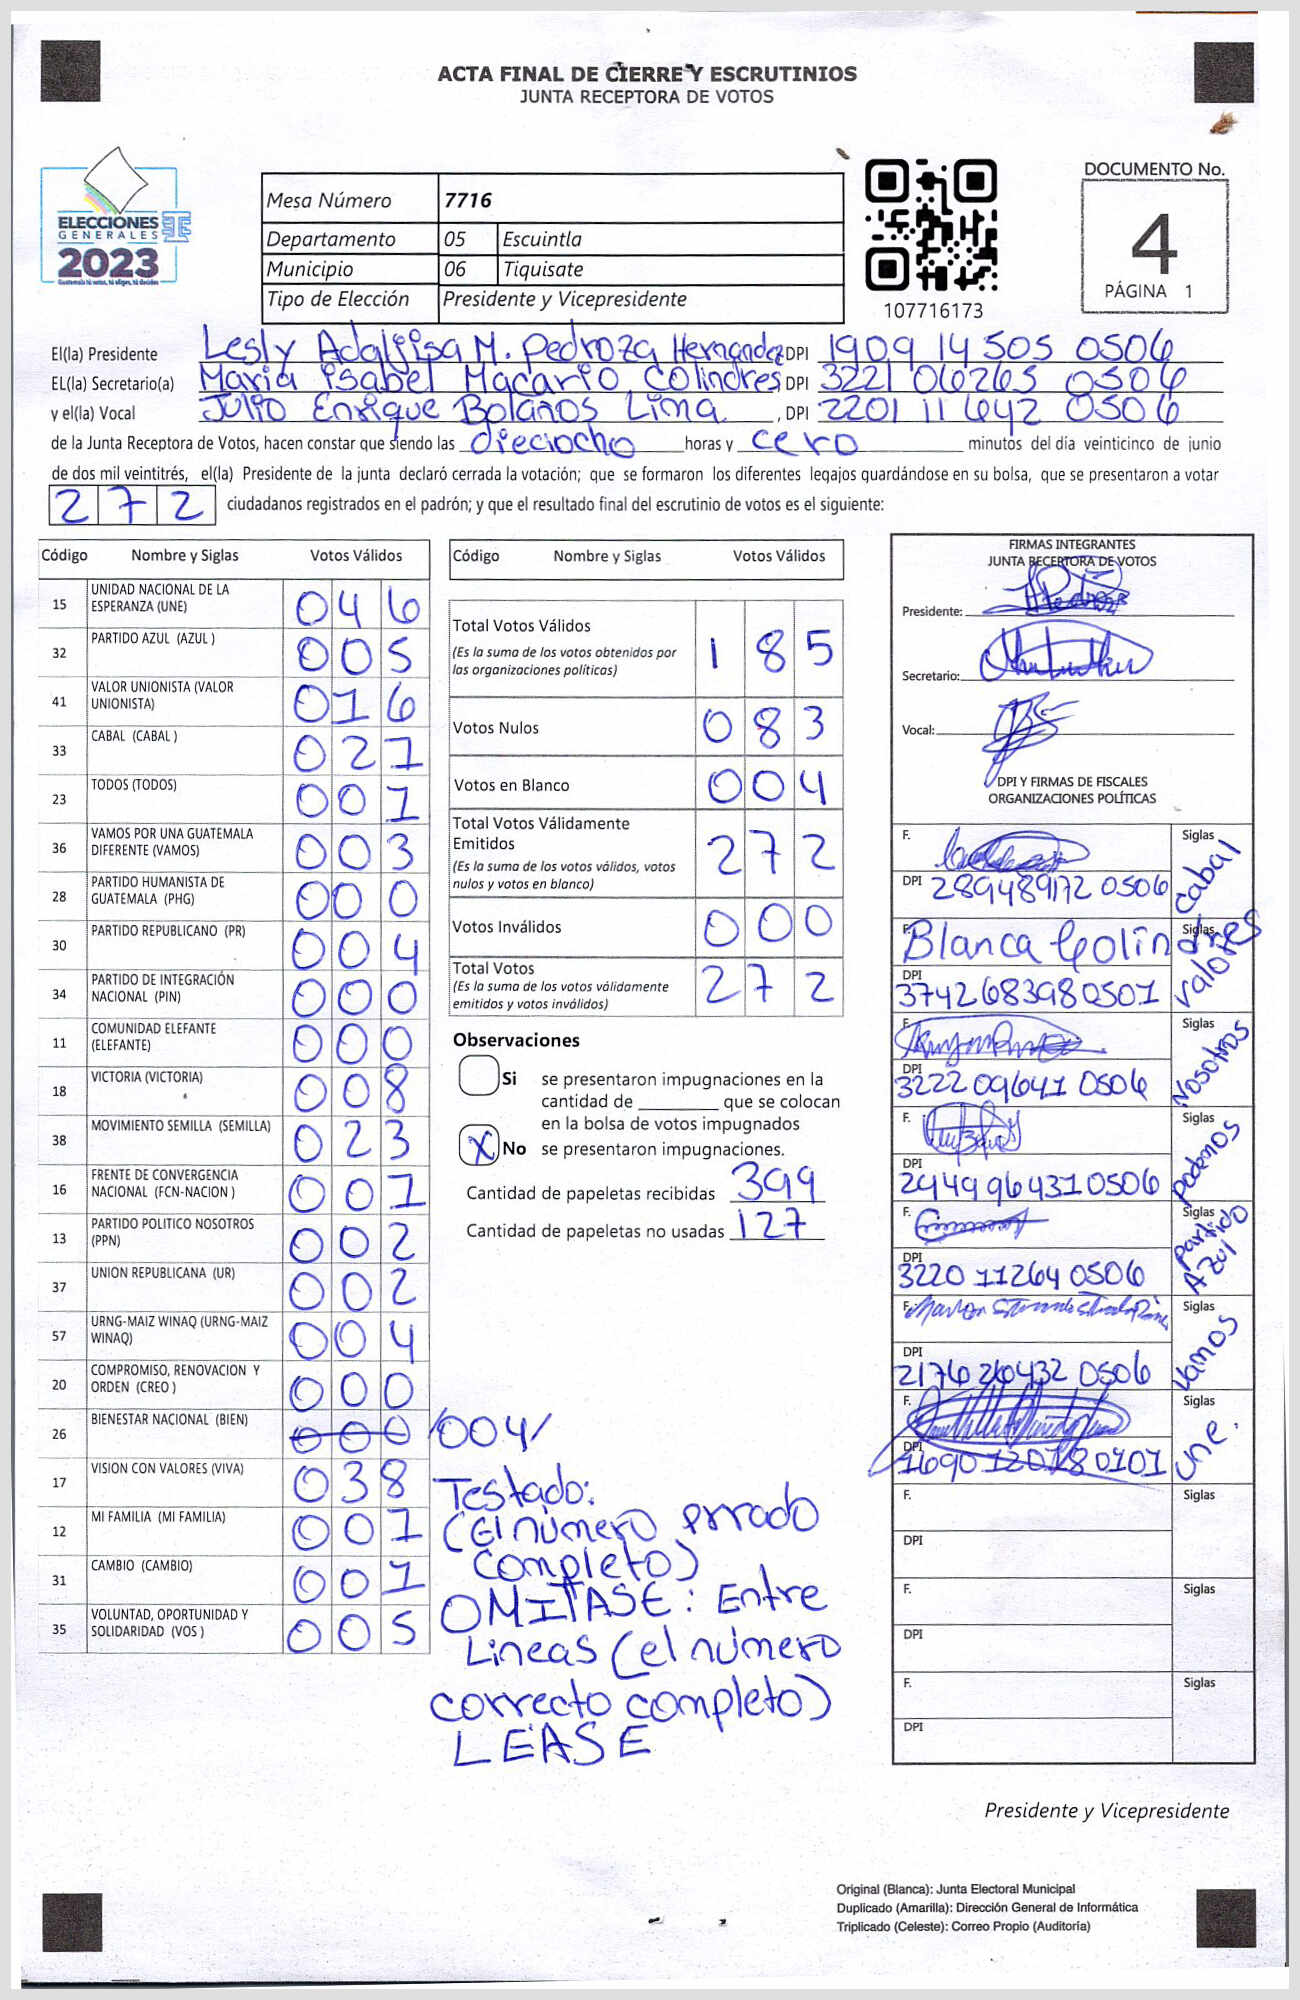 ACTA FINAL DE CIERRE Y ESCRUTINIOS
JUNTA RECEPTORA DE VOTOS
ELECCIONES
GENERALES
2023
Guatemala tú votas, tú eliges, tú decides
Mesa Número 7716
Departamento 05 Escuintla
Municipio 06 Tiquisate
Tipo de Elección Presidente y Vicepresidente
107716173
DOCUMENTO No.
4
PÁGINA 1
El(la) Presidente Lesly Adaljisa M. Pedroza Hernandez DPI 1909 14 505 0506
EL(la) Secretario(a) Maria isabel Macario Colindres DPI 3221 06265 0506
y el(la) Vocal Julio Enrique Bolaños Lima , DPI 2201 11 642 0506
de la Junta Receptora de Votos, hacen constar que siendo las dieciocho horas y cero minutos del día veinticinco de junio
de dos mil veintitrés, el(la) Presidente de la junta declaró cerrada la votación; que se formaron los diferentes legajos guardándose en su bolsa, que se presentaron a votar
272 ciudadanos registrados en el padrón; y que el resultado final del escrutinio de votos es el siguiente:
Código Nombre y Siglas Votos Válidos
15 UNIDAD NACIONAL DE LA ESPERANZA (UNE) 046
32 PARTIDO AZUL (AZUL ) 005
41 VALOR UNIONISTA (VALOR UNIONISTA) 016
33 CABAL (CABAL ) 021
23 TODOS (TODOS) 001
36 VAMOS POR UNA GUATEMALA DIFERENTE (VAMOS) 003
28 PARTIDO HUMANISTA DE GUATEMALA (PHG) 000
30 PARTIDO REPUBLICANO (PR) 004
34 PARTIDO DE INTEGRACIÓN NACIONAL (PIN) 000
11 COMUNIDAD ELEFANTE (ELEFANTE) 000
18 VICTORIA (VICTORIA) 008
38 MOVIMIENTO SEMILLA (SEMILLA) 023
16 FRENTE DE CONVERGENCIA NACIONAL (FCN-NACION ) 001
13 PARTIDO POLITICO NOSOTROS (PPN) 002
37 UNION REPUBLICANA (UR) 002
57 URNG-MAIZ WINAQ (URNG-MAIZ WINAQ) 004
20 COMPROMISO, RENOVACION Y ORDEN (CREO ) 000
26 BIENESTAR NACIONAL (BIEN) 000 /004/
17 VISION CON VALORES (VIVA) 038
12 MI FAMILIA (MI FAMILIA) 001
31 CAMBIO (CAMBIO) 001
35 VOLUNTAD, OPORTUNIDAD Y SOLIDARIDAD (VOS ) 005
Código Nombre y Siglas Votos Válidos
Total Votos Válidos 185
(Es la suma de los votos obtenidos por
las organizaciones políticas)
Votos Nulos 083
Votos en Blanco 004
Total Votos Válidamente
Emitidos 272
(Es la suma de los votos válidos, votos
nulos y votos en blanco)
Votos Inválidos 000
Total Votos 272
(Es la suma de los votos válidamente
emitidos y votos inválidos)
Observaciones
Si se presentaron impugnaciones en la
cantidad de ________ que se colocan
en la bolsa de votos impugnados
X No se presentaron impugnaciones.
Cantidad de papeletas recibidas 399
Cantidad de papeletas no usadas 127
Testado:
(El número errado
completo)
OMITASE: Entre
Lineas (el número
correcto completo)
LEASE
FIRMAS INTEGRANTES
JUNTA RECEPTORA DE VOTOS
Presidente:
Secretario:
Vocal:
DPI Y FIRMAS DE FISCALES
ORGANIZACIONES POLÍTICAS
F. Siglas Cabal
DPI 289489172 0506
F. Blanca Colindres Siglas Valores
DPI 3742683980501
F. Siglas Nosotros
DPI 3222 09641 0506
F. Siglas podemos
DPI 2949 96431 0506
F. Siglas Partido Azul
DPI 3220 11264 0506
F. Siglas Vamos
DPI 2176 26432 0506
F. Siglas Une.
DPI 1690 12078 0101
F. Siglas
DPI
F. Siglas
DPI
F. Siglas
DPI
Presidente y Vicepresidente
Original (Blanca): Junta Electoral Municipal
Duplicado (Amarilla): Dirección General de Informática
Triplicado (Celeste): Correo Propio (Auditoría)